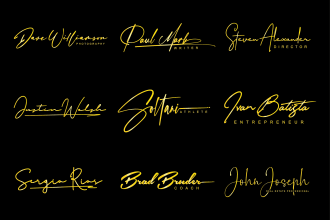 Dave Williamson
PHOTOGRAPHY
Paul Mark
WRITER
Steven Alexander
DIRECTOR
Justin Walsh
Soltani
ATHLETE
Ivan Batista
ENTREPRENEUR
Sergio Rios
Brad Bruder
COACH
John Joseph